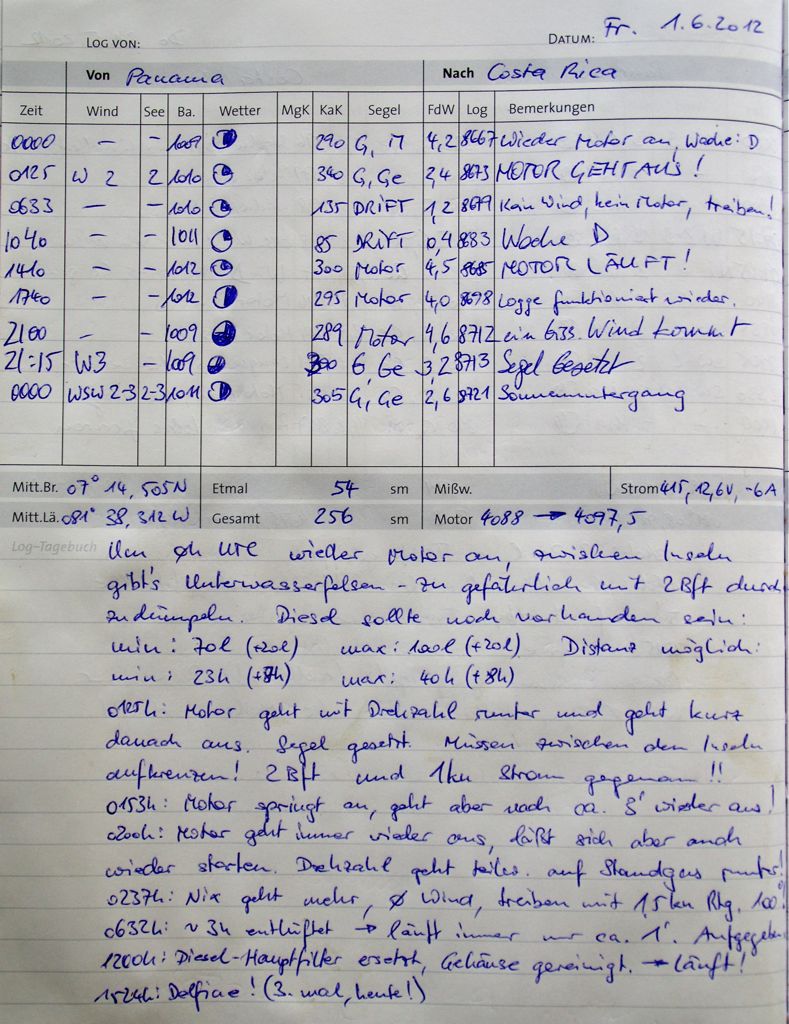 LOG VON: DATUM: Fr. 1.6.2012
Von Panama Nach Costa Rica
Zeit Wind See Ba. Wetter MgK KaK Segel FdW Log Bemerkungen
0000 – – 1009 290 G, M 4,2 8667 Wieder Motor an, Wache: D
0125 W 2 2 1010 340 G, Ge 2,4 8673 MOTOR GEHT AUS!
0633 – – 1010 135 DRIFT 1,2 8679 Kein Wind, kein Motor, treiben!
1040 – – 1011 85 DRIFT 0,4 8683 Wache D
1410 – – 1012 300 Motor 4,5 8685 MOTOR LÄUFT!
1740 – – 1012 295 Motor 4,0 8698 Logge funktioniert wieder.
2100 – – 1009 289 Motor 4,6 8712 ein biss. Wind kommt
21:15 W3 – 1009 300 G, Ge 3,2 8713 Segel gesetzt
0000 WSW 2-3 2-3 1011 305 G, Ge 2,6 8721 Sonnenuntergang
Mitt.Br. 07° 14,505N Etmal 54 sm Mißw. Strom 415, 12,6V, -6A
Mitt.Lä. 081° 38,312 W Gesamt 256 sm Motor 4088 → 4097,5
Log-Tagebuch Um 0h UTC wieder Motor an, zwischen Inseln
gibt's Unterwasserfelsen - zu gefährlich mit 2Bft durch
zudümpeln. Diesel sollte noch vorhanden sein:
min: 70l (+20l) max: 100l (+20l) Distanz möglich:
min: 23h (+8h) max: 40h (+8h)
0125h: Motor geht mit Drehzahl runter und geht kurz
danach aus. Segel gesetzt. Müssen zwischen den Inseln
aufkreuzen! 2Bft und 1kn Strom gegenan!!
0153h: Motor springt an, geht aber nach ca. 5' wieder aus!
0200h: Motor geht immer wieder aus, läßt sich aber auch
wieder starten. Drehzahl geht teilw. auf Standgas runter!
0237h: Nix geht mehr, ∅ Wind, treiben mit 1,5kn Rtg. 100°!
0632h: ~ 3h entlüftet → läuft immer nur ca. 1'. Aufgegeben
1200h: Diesel-Hauptfilter ersetzt, Gehäuse gereinigt. → läuft!
1524h: Delfine! (3. mal, heute!)